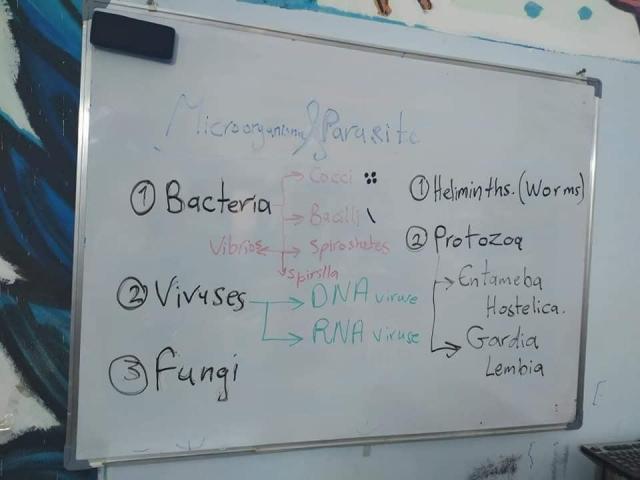 Microorganisms & Parasite
① Bacteria
Cocci
Bacilli
Vibrios
Spiroshetes
Spirslla
② Viruses
DNA viruse
RNA viruse
③ Fungi
① Heliminths. (Worms)
② Protozoa
Entameba
Hostelica.
Gardia
Lembia